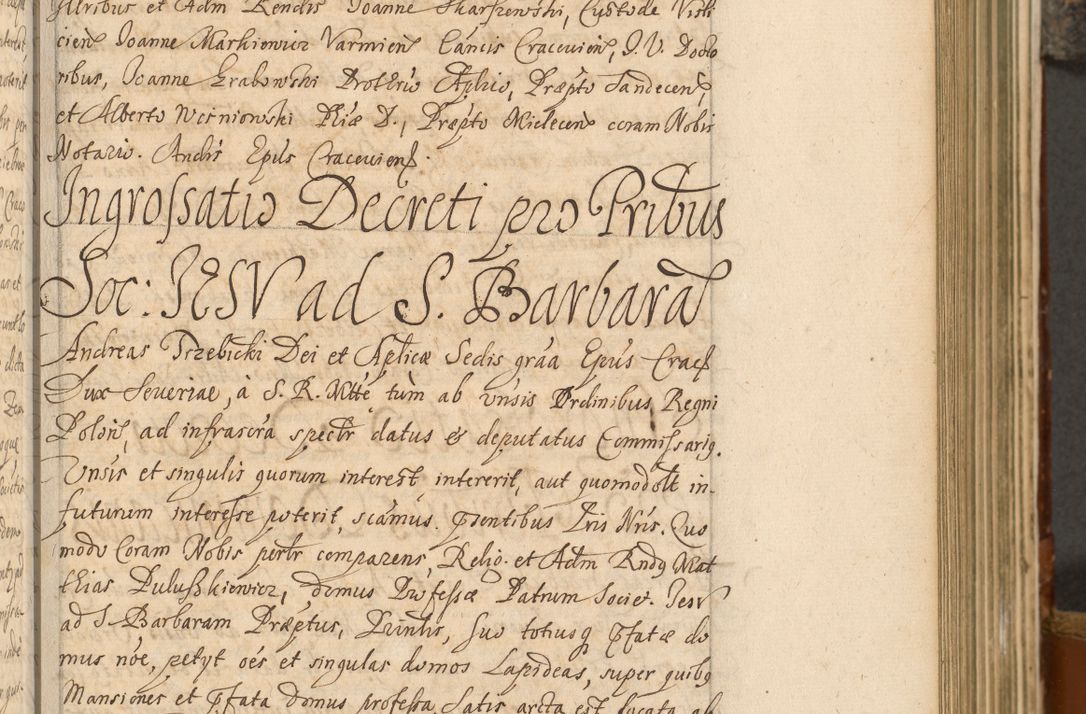 Illribus et Adm Rendis Joanne Skarszewski, Custode Visli
ciens Joanne Markiewicz Varmien Cancis Cracovien, J. V. Docto
ribus, Joanne Grabowski Protho Aplico, Præpto Sandecens
et Alberto Wisniowski Phiæ D., Præpto Mielecens coram Nobis
Notario. Andis Epus Cracoviens.
Ingrossatio Decreti pro Pribus
Soc: JESV ad S. Barbara
Andreas Trzebicki Dei et Aplicæ Sedis graa Epus Crac
Dux Severiae, à S. R. Mtte tùm ab vnsis Ordinibus Regni
Polon, ad infrascra spectr datus & deputatus Commissariq.
Vnsis et singulis quorum interest intererit, aut quomodolt in-
futurum interesse poterit, scimus. psentibus Lris Nris. Quo
modo Coram Nobis perlr comparens, Relig. et Adm Rndq Mat
thias Pulußkiewicz, domus Professæ Patrum Societ. Jesv
ad S. Barbaram Præptus, Printis, suo totiusq pfatæ do
mus nõe, petyt oes et singulas domos Lapideas, super quibq
Mansiones et pfata domus professa satis arcta est locata ab